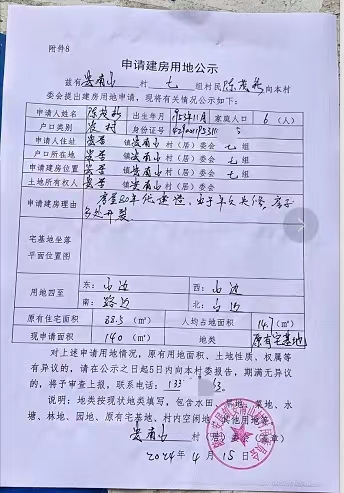 附件8
申请建房用地公示
兹有 村 七 组村民陈茂 向本村
委会提出建房用地申请，现将有关情况公示如下：
申请人姓名 陈茂 出生年月 1953年11月 家庭人口 6（人）
户口类别 农村 身份证号
申请人住址 镇 村（居）委会 七 组
户口所在地 镇 村（居）委会 七 组
申请建房位置 镇 村（居）委会 七 组
土地所有权人 镇 村（居）委会
申请建房理由 年代建造，由于年久失修，房子
多处开裂
宅基地坐落
平面位置图
用地四至 东：山边 西：山边
南：路边 北：山边
原有住宅面积 88.5（㎡） 人均占地面积 14.7（㎡）
现申请面积 140（㎡） 地类 原有宅基地
对上述申请用地情况，原有用地面积、土地性质、权属等
有异议的，请在公示之日起5日内向本村委报告，期满无异议
的，将予审查上报，联系电话：133
说明：地类按现状地类填写，包含水田、旱地、菜地、水
塘、林地、园地、原有宅基地、村内空闲地、其他用地等
村（居）委会（盖章）
2024年4月15日